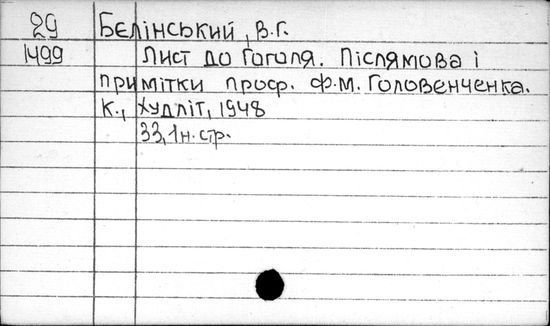 29 Бєлінський, В.Г.
1499 Лист до Гоголя. Післямова і
примітки проф. Ф.М. Головенченка.
К., Худліт, 1948
33, 1н. стр.